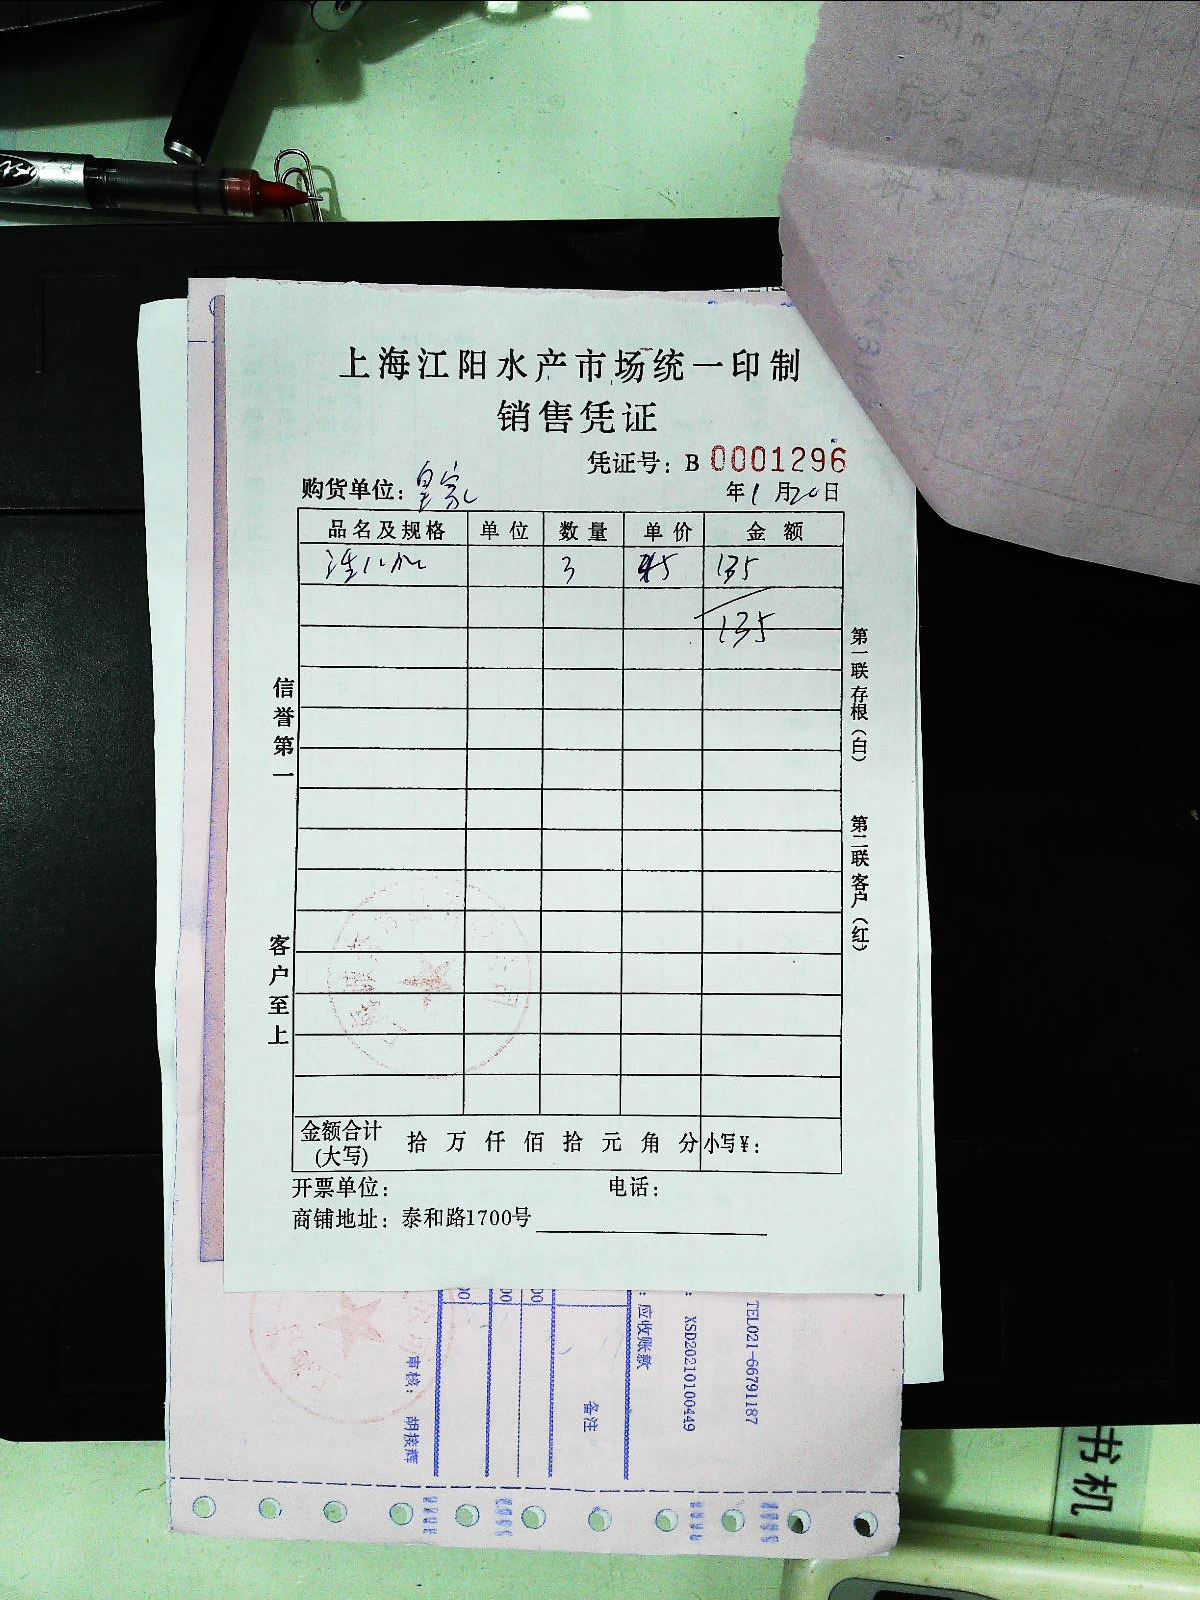 上海江阳水产市场统一印制
销售凭证
凭证号：B 0001296
购货单位：皇家 年1月20日
品名及规格 单位 数量 单价 金额
3 45 135
135
信誉第一
客户至上
第一联存根（白）
第二联客户（红）
金额合计(大写) 拾 万 仟 佰 拾 元 角 分 小写￥：
开票单位： 电话：
商铺地址：泰和路1700号
TEL021-66791187
XSD20210100449
：应收账款
备注
审核： 胡接辉
书机